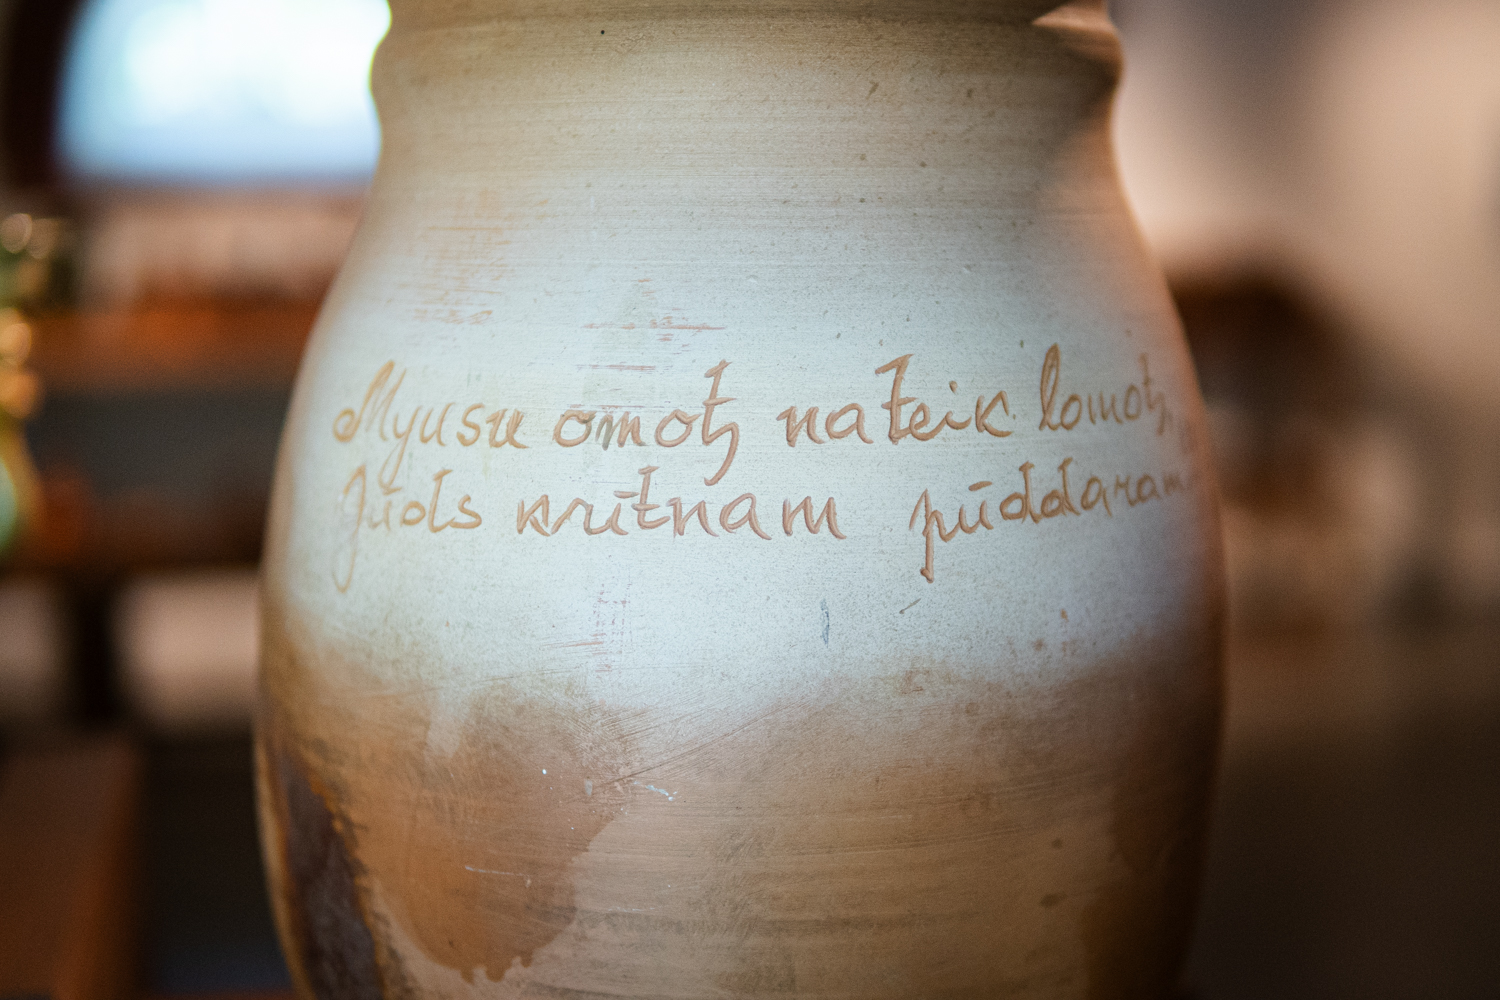 Myusu omoţ naţeik lomoţ,
Jūds krītnam pūddaram